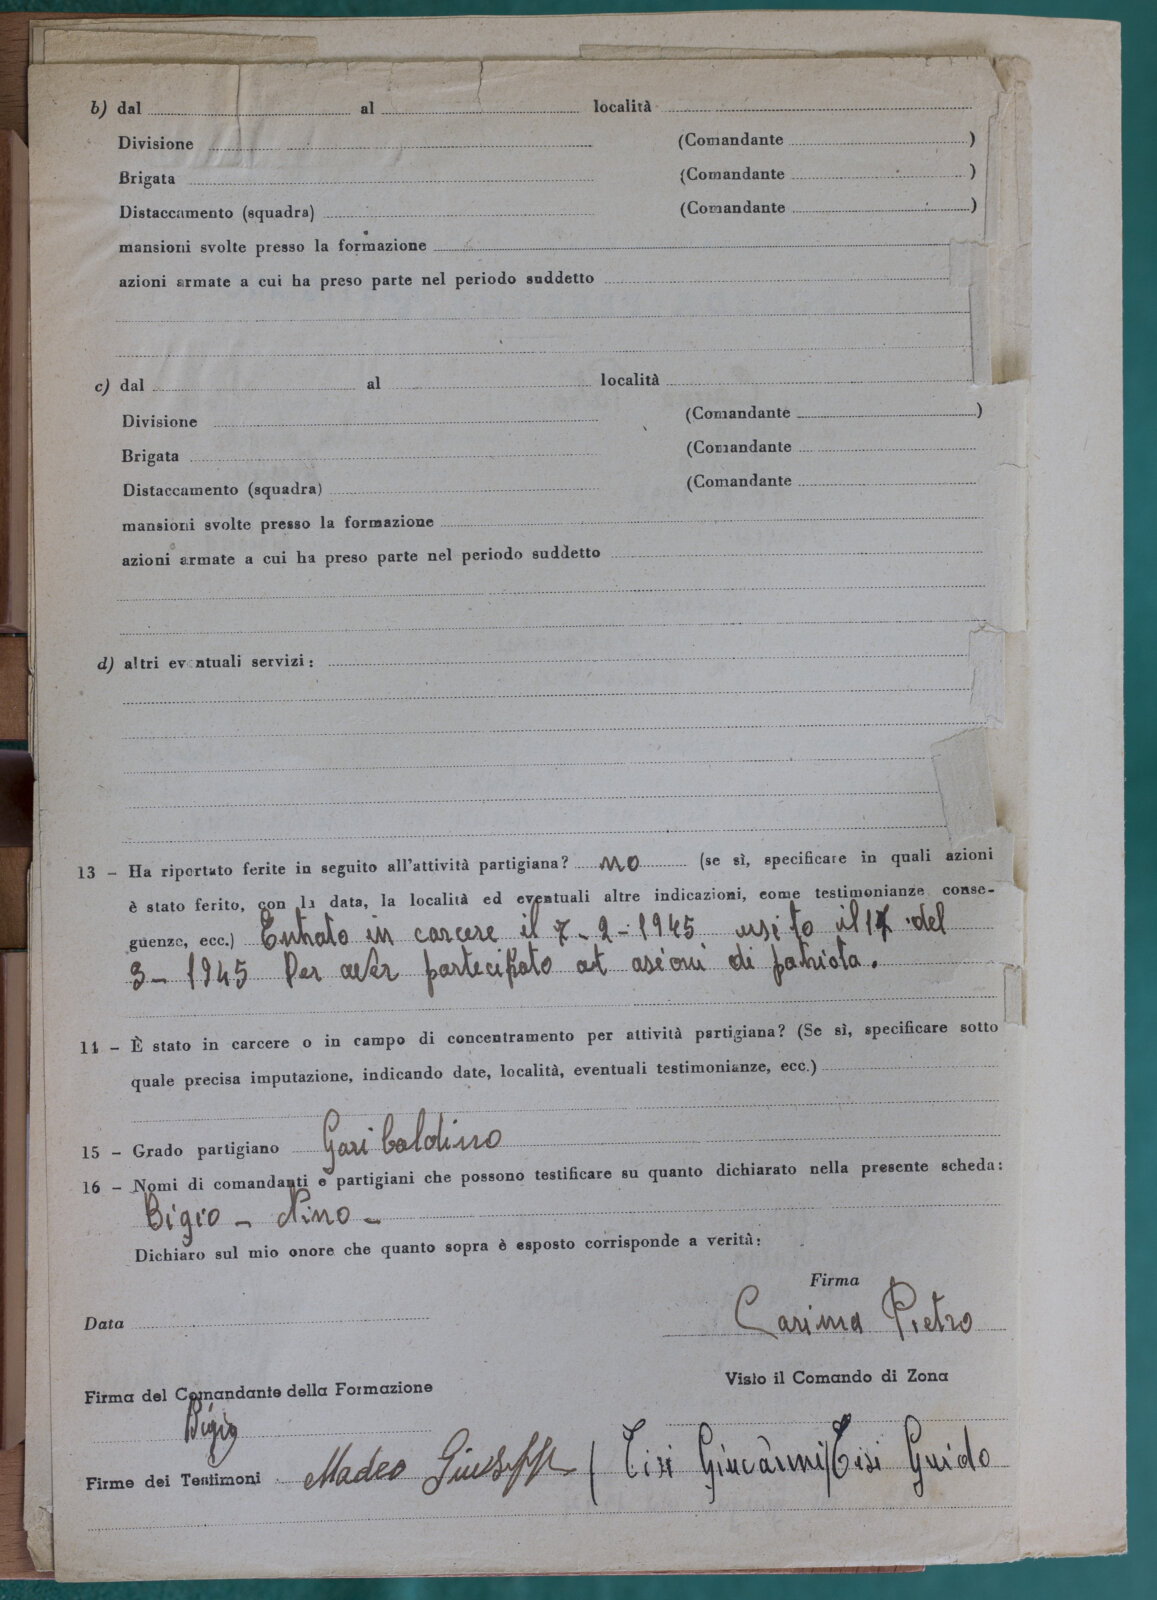 b) dal al località
Divisione (Comandante )
Brigata (Comandante )
Distaccamento (squadra) (Comandante )
mansioni svolte presso la formazione
azioni armate a cui ha preso parte nel periodo suddetto
c) dal al località
Divisione (Comandante )
Brigata (Comandante
Distaccamento (squadra) (Comandante
mansioni svolte presso la formazione
azioni armate a cui ha preso parte nel periodo suddetto
d) altri eventuali servizi:
13 - Ha riportato ferite in seguito all'attività partigiana? no (se sì, specificare in quali azioni
è stato ferito, con la data, la località ed eventuali altre indicazioni, come testimonianze conse-
guenze, ecc.) Entrato in carcere il 7-2-1945 usito il 17 del
3-1945 Per aver partecipato at asioni di patriota.
14 - È stato in carcere o in campo di concentramento per attività partigiana? (Se sì, specificare sotto
quale precisa imputazione, indicando date, località, eventuali testimonianze, ecc.)
15 - Grado partigiano Garibaldino
16 - Nomi di comandanti e partigiani che possono testificare su quanto dichiarato nella presente scheda:
Bigio - Nino -
Dichiaro sul mio onore che quanto sopra è esposto corrisponde a verità:
Firma
Data Carima Pietro
Firma del Comandante della Formazione Visto il Comando di Zona
Bigio
Firme dei Testimoni Madeo Giuseppe / Tisi Giucànni / Tisi Guido